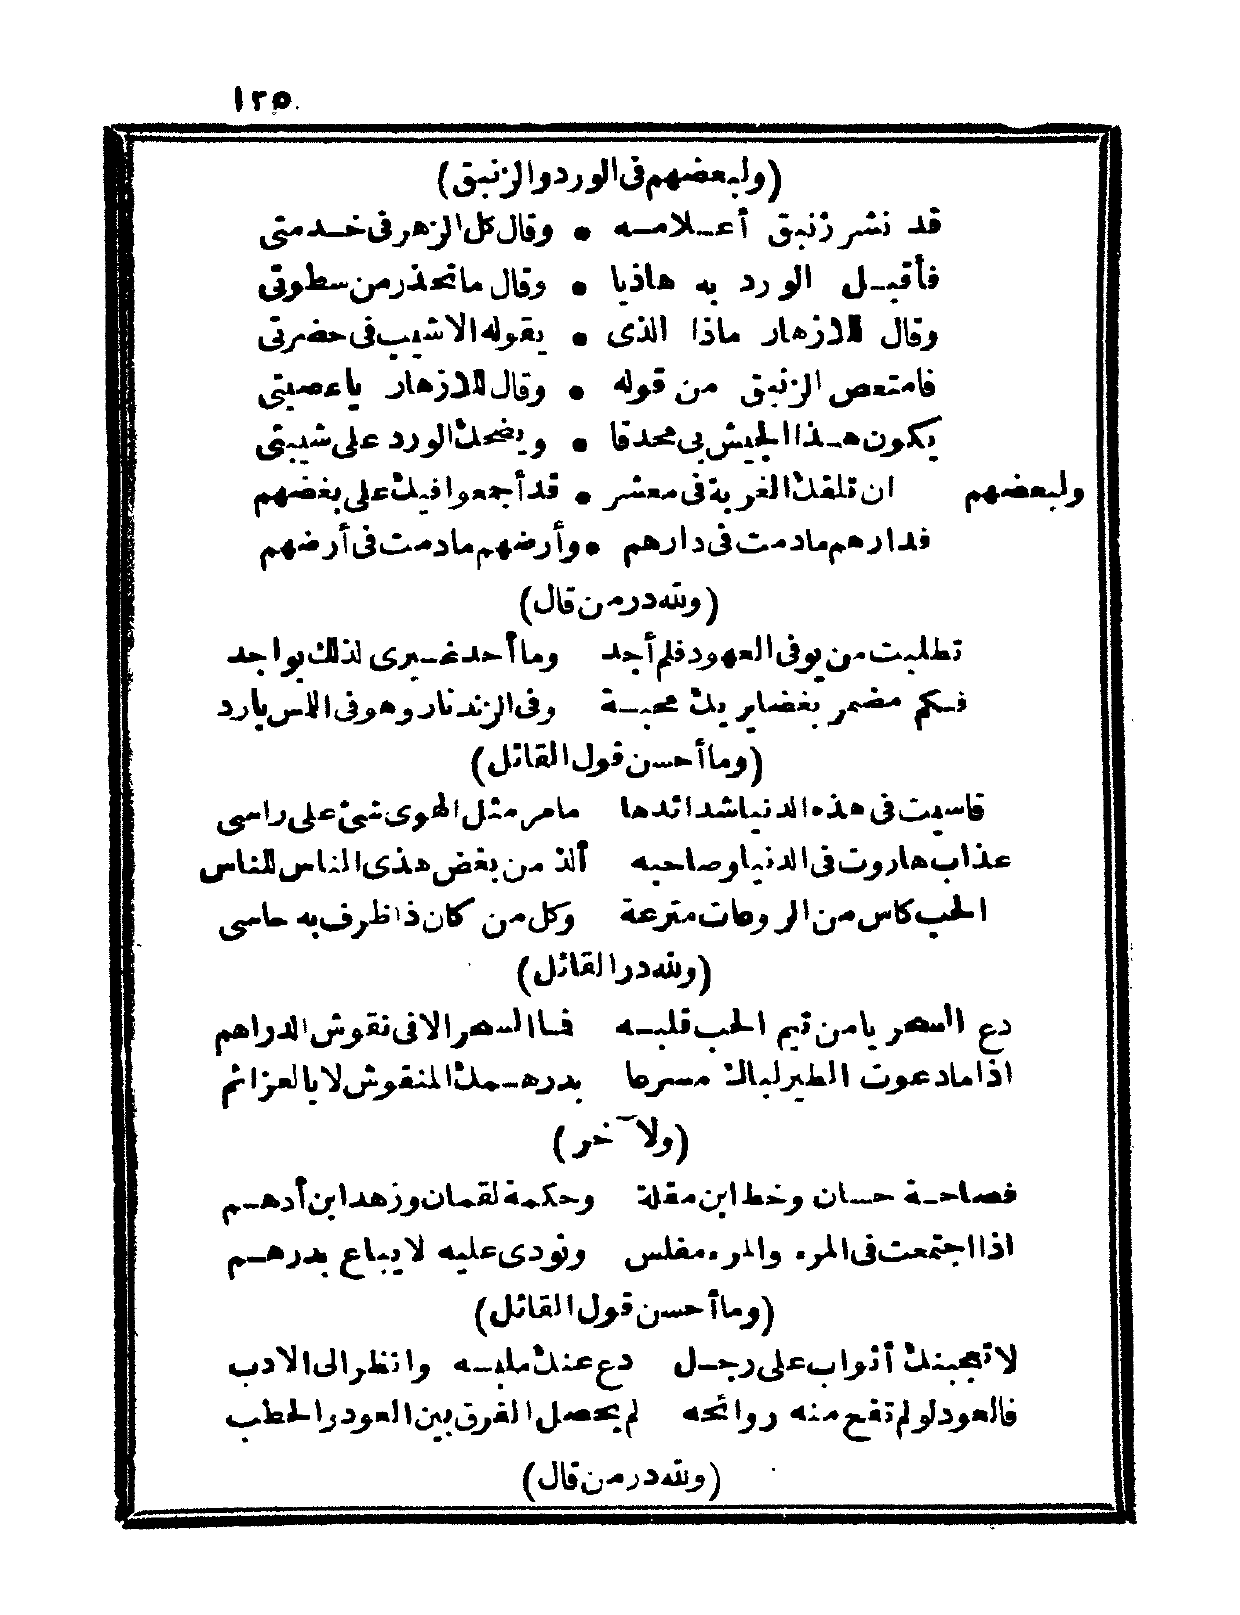 ١٢٥
(ولبعضهم فى الورد والزنبق)
قد نشر زنبق أعلامه • وقال كل الزهر فى خدمتى
فأقبل الورد به هاذيا • وقال ماتحذر من سطوتى
وقال للازهار ماذا الذى • يقوله الاشيب فى حضرتى
فامتعص الزنبق من قوله • وقال للازهار ياعصبتى
يكون هذا الجيش بى محدقا • ويضحك الورد على شيبتى
ولبعضهم ان تلقك الغربة فى معشر • قد أجمعوا فيك على بغضهم
فدارهم مادمت فى دارهم • وأرضهم مادمت فى أرضهم
(ولله در من قال)
تطلبت من يوفى العهود فلم أجد وما أحد غيرى لذلك بواجد
فكم مضمر بغضا يريك محبة وفى الزند نار وهو فى اللس بارد
(وما أحسن قول القائل)
قاسيت فى هذه الدنيا شدائدها مامر مثل الهوى شئ على راسى
عذاب هاروت فى الدنيا وصاحبه ألذ من بغض هذى الناس للناس
الحب كاس من الروعات مترعة وكل من كان ذا ظرف به حاسى
(ولله در القائل)
دع السحر يامن تيم الحب قلبه فما السحر الا فى نقوش الدراهم
اذا مادعوت الطير لباك مسرعا بدرهمك المنقوش لا بالعزائم
(ولآخر)
فصاحة حسان وخط ابن مقلة وحكمة لقمان وزهد ابن أدهم
اذا اجتمعت فى المرء والمرء مفلس ونودى عليه لا يباع بدرهم
(وما أحسن قول القائل)
لا تعجبنك أثواب على رجل دع عنك ملبسه وانظر الى الادب
فالعود لو لم تفح منه روائحه لم يحصل الفرق بين العود والحطب
(ولله در من قال)